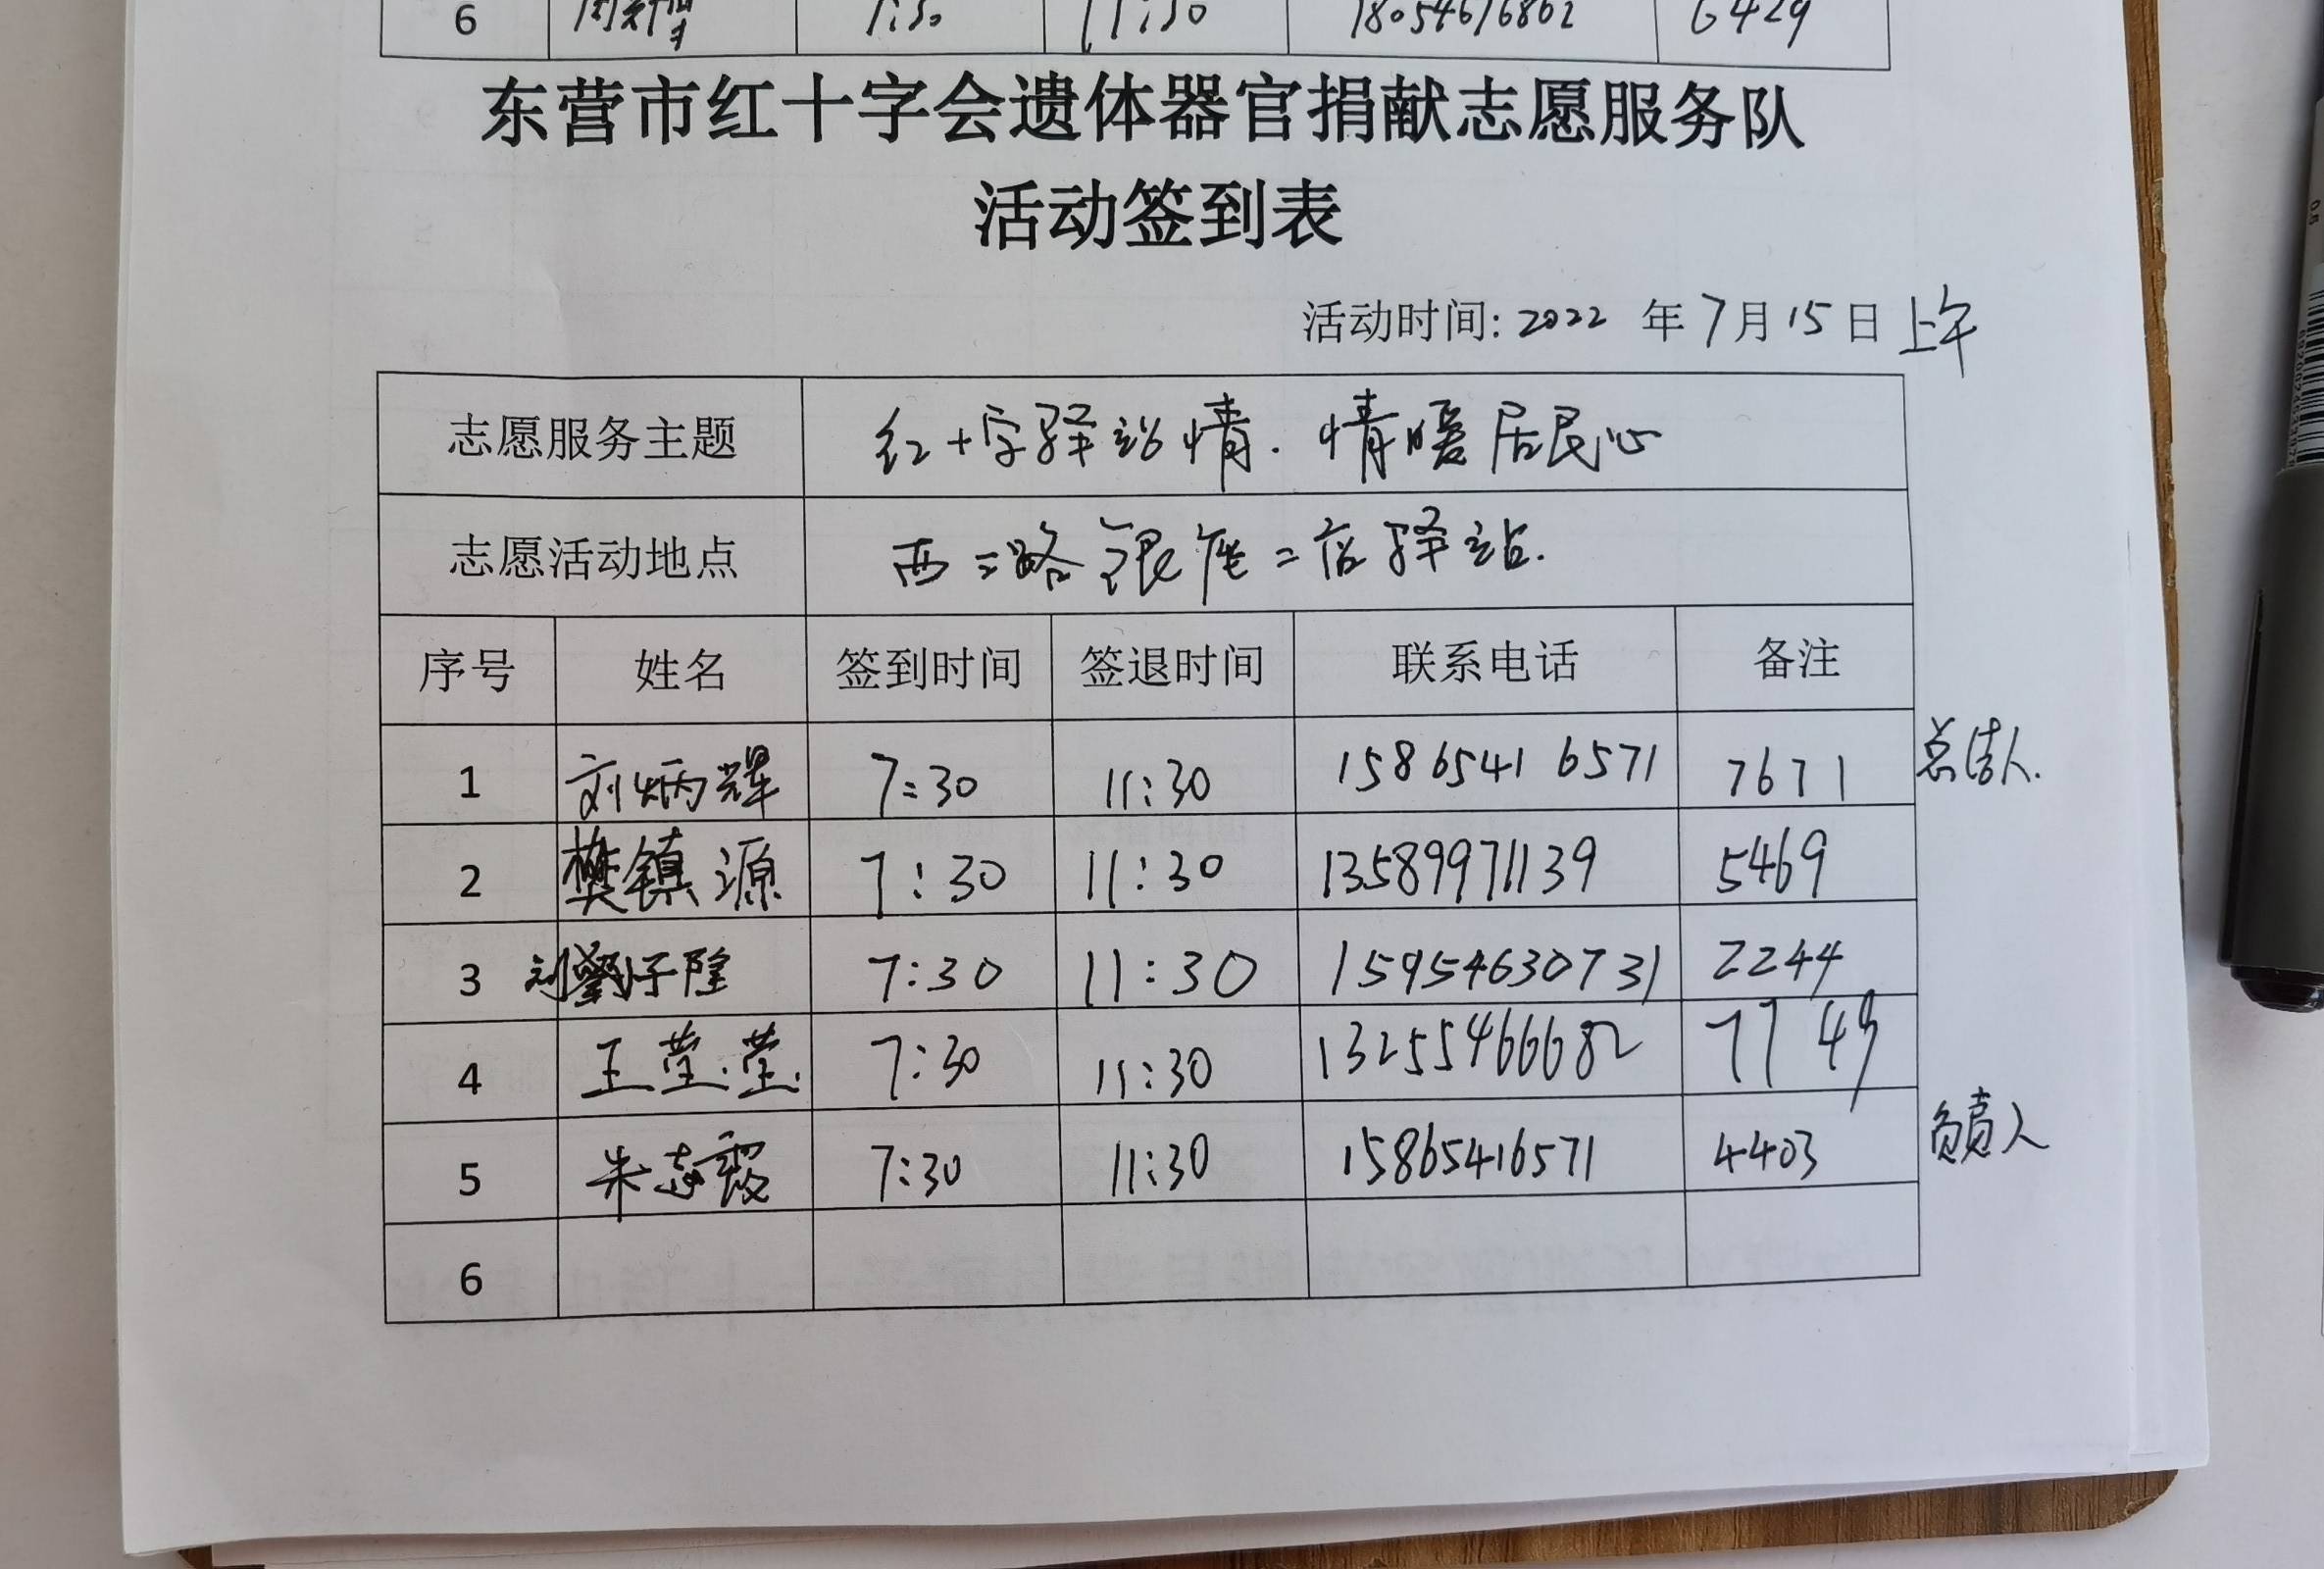 6 1:30 11:30 18054616862 6429
东营市红十字会遗体器官捐献志愿服务队
活动签到表
活动时间: 2022 年 7 月 15 日 上午
志愿服务主题 红十字驿站情. 情暖居民心
志愿活动地点 西二路银座二店驿站.
序号 姓名 签到时间 签退时间 联系电话 备注
1 刘炳辉 7:30 11:30 15865416571 7671 总结人.
2 樊镇源 7:30 11:30 13589971139 5469
3 刘子隆 7:30 11:30 15954630731 2244
4 王莹莹 7:30 11:30 13255466682 7749
5 朱志霞 7:30 11:30 15865416571 4403 负责人
6